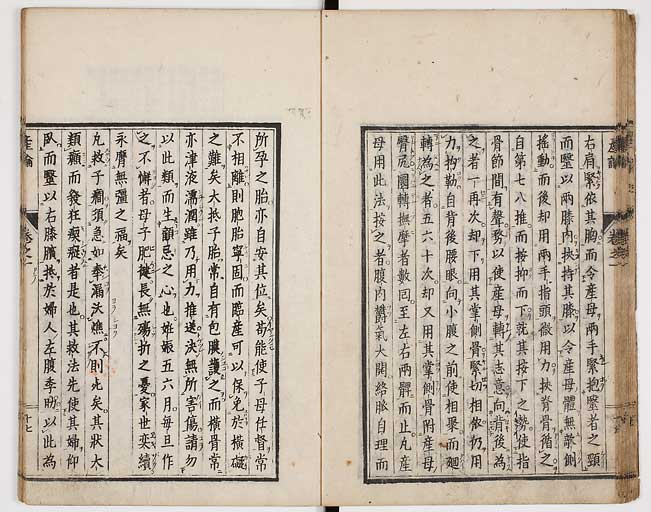 右肩緊依其胸而令産母兩手緊抱毉者之頸
而毉以兩膝内挾持其膝以令産母體無欹側
搖動而後却用兩手指頭微用力挾脊骨循之
自第七八推而按抑而下就其按下之撓使指
骨節間有聲務以使産母轉其志意向背後為
之者一再次却下用其掌側骨緊切相依仍用
力拘勒自背後腰眼向小腹之前使相聚而廻
轉為之者五六十次却又用其掌側骨附産母
臀尻圓轉撫摩者數回至左右兩髀而止凡産
母用此法按之者腹内欝氣大開絡脈自理而
所孕之胎亦自安其位矣苟能使子母任督常
不相離則胞胎寧固而臨産可以保免於橫礙
之難矣大抵子胎常自有包膜護之而橫骨常
亦津液濡潤雖乃用力推送決無所害傷請勿
以此類而生顧忌之心也妊娠五六月每旦作
之不懈者母子肥健長無殤折之憂家世奕續
永膺無彊之福矣
凡救子癇須急如奉漏沃燋不則死矣其狀大
類癲而發狂瘈瘲者是也其救法先使其婦仰
臥而毉以右膝膹拄於婦人左腹季肋以此為
産論
卷之一
十七